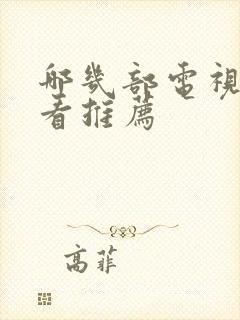 哪幾部電視
看推薦
高菲